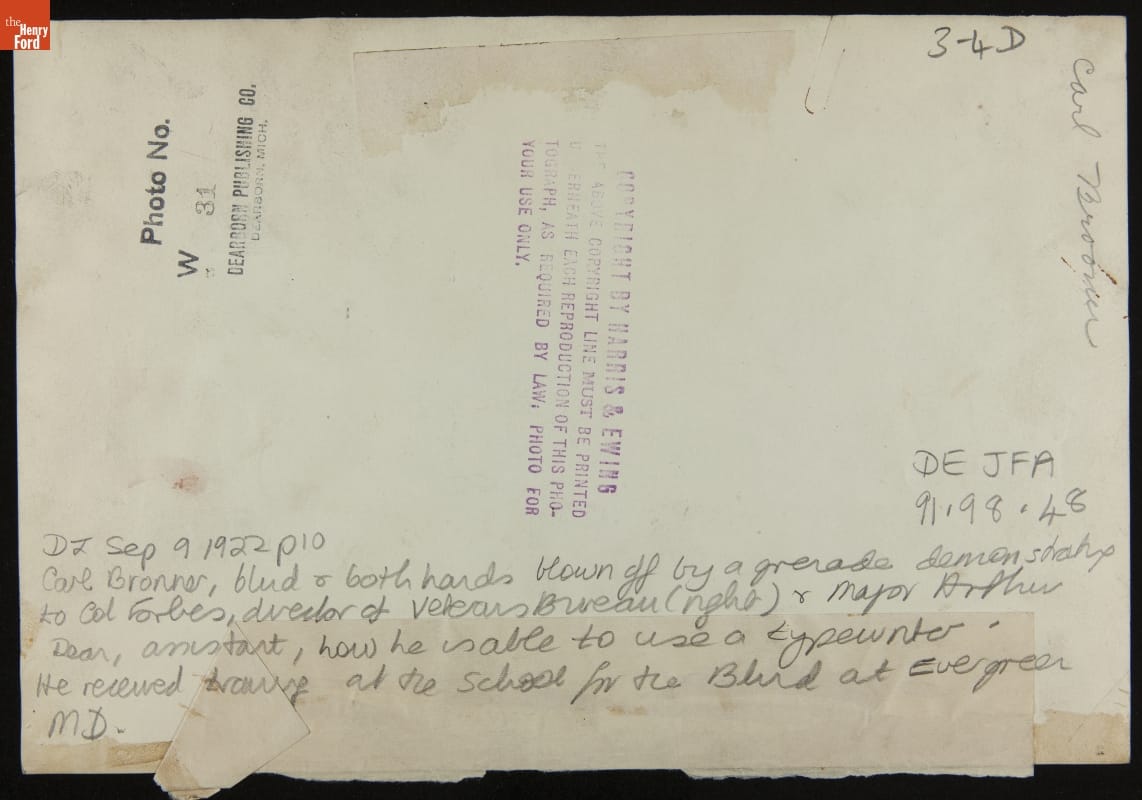 the
Henry
Ford
3-4D
Carl Bronner
Photo No.
W 31
DEARBORN PUBLISHING CO.
DEARBORN, MICH.
COPYRIGHT BY HARRIS & EWING
THE ABOVE COPYRIGHT LINE MUST BE PRINTED
UNDERNEATH EACH REPRODUCTION OF THIS PHO-
TOGRAPH, AS REQUIRED BY LAW; PHOTO FOR
YOUR USE ONLY.
DE JFA
91.98.48
DI Sep 9 1922 p10
Carl Bronner, blind & both hands blown off by a grenade demonstrating
to Col Forbes, director of Veterans Bureau (right) & Major Arthur
Dean, assistant, how he is able to use a typewriter.
He received training at the School for the Blind at Evergreen
MD.